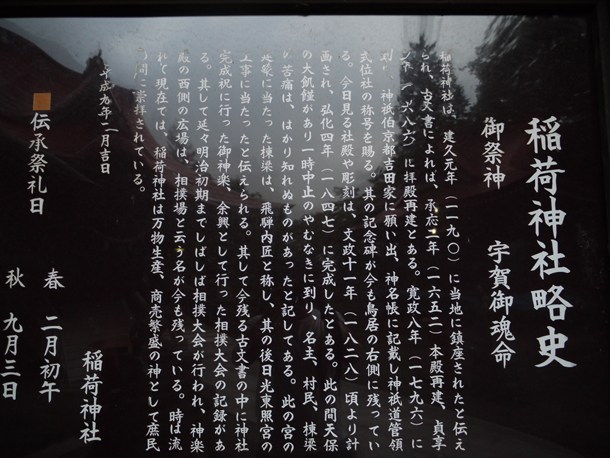 稲荷神社略史
御祭神　宇賀御魂命
稲荷神社は、建久元年（一一九〇）に当地に鎮座されたと伝え
られ、古文書によれば、承応二年（一六五二）本殿再建、貞享
（一六八六）に拝殿再建とある。寛政八年（一七九六）に
神祇伯京都吉田家に願い出、神名帳に記載し神祇道管領
式位社の称号を賜る。其の記念碑が今も鳥居の右側に残ってい
る。今日見る社殿や彫刻は、文政十一年（一八二八）頃より計
画され、弘化四年（一八四七）に完成したとある。此の間天保
の大飢饉があり一時中止のやむなきに到り、名主、村民、棟梁
苦痛は、はかり知れぬものがあったと記してある。此の宮の
建築に当たった棟梁は、飛騨内匠と称し、其の後日光東照宮の
工事に当たったと伝えられる。其して今残る古文書の中に神社
完成祝に行った御神楽、余興として行った相撲大会の記録があ
る。其して延々明治初期までしばしば相撲大会が行われ、神楽
殿の西側の広場は、相撲場と云う名が今も残っている。時は流
れて現在では、稲荷神社は万物生産、商売繁盛の神として庶民
の間に崇拝されている。
平成九年二月吉日
稲荷神社
伝承祭礼日　春　二月初午
秋　九月三日